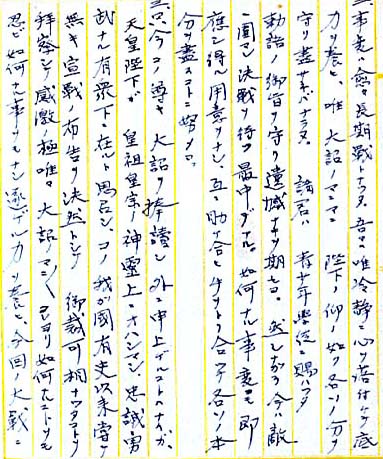 ハ愈々長期戦トナツタ。吾々ハ唯冷静ニ心ヲ落付ケテ底
力ヲ養ヒ、唯 大詔ノマニマニ 陛下ノ仰ノ如ク各々ノ分ヲ
守リ盡サネバナラヌ 諸君ハ 青少年學徒ニ賜ハツタ
勅語ノ御旨ヲ守リ遺憾ナキヲ期セヨ。然シナガラ今ハ敵
決戰ヲ待ツ最中デアル。如何ナル事変ニモ即
應シ得ル用意ヲナシ、互ニ助ケ合ヒ手ヲトリ合ツテ各々ノ本
分ヲ盡スコトニ努メヨ。
三、只今コノ尊キ 大詔ヲ捧讀シ 外ニ申上ゲルコトハナイガ、
天皇陛下ガ 皇祖皇宗ノ神靈上ニオハシマシ 忠誠勇
武ナル有衆下ニ在ルト思召シ、コノ我ガ國有史以来嘗テ
無キ宣戰ノ布告ヲ決然トシテ 御裁可相ナツタコトヲ
拜察シテ感激ノ極唯々 大詔ノマニマニ 如何ナルコトヲモ
忍ビ如何ナル事ヲモナシ遂ゲル力ヲ養ヒ、今回ノ大戰ニ